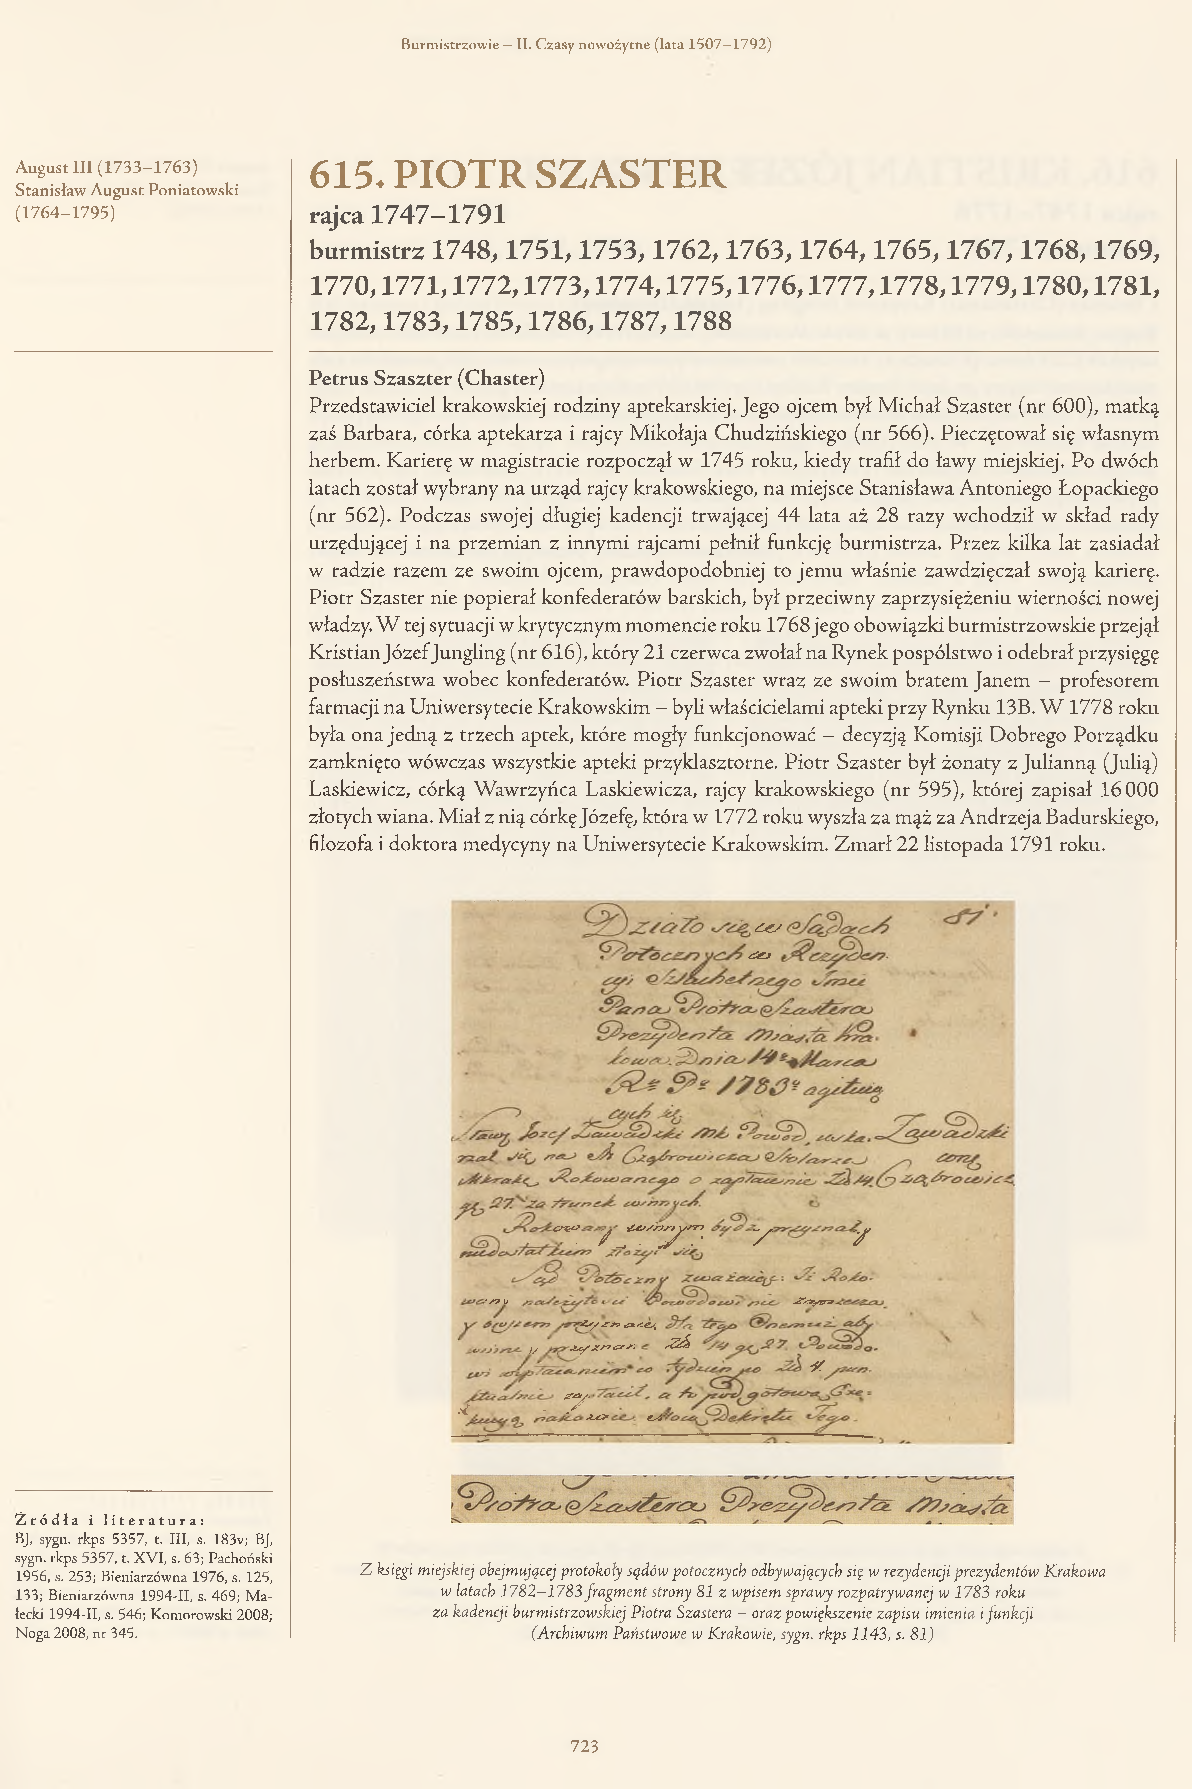 Burmistrzowie – II. Czasy nowożytne (lata 1507–1792)
August III (1733–1763)
Stanisław August Poniatowski
(1764–1795)
615. PIOTR SZASTER
rajca 1747–1791
burmistrz 1748, 1751, 1753, 1762, 1763, 1764, 1765, 1767, 1768, 1769,
1770, 1771, 1772, 1773, 1774, 1775, 1776, 1777, 1778, 1779, 1780, 1781,
1782, 1783, 1785, 1786, 1787, 1788
Petrus Szaszter (Chaster)
Przedstawiciel krakowskiej rodziny aptekarskiej. Jego ojcem był Michał Szaster (nr 600), matką
zaś Barbara, córka aptekarza i rajcy Mikołaja Chudzińskiego (nr 566). Pieczętował się własnym
herbem. Karierę w magistracie rozpoczął w 1745 roku, kiedy trafił do ławy miejskiej. Po dwóch
latach został wybrany na urząd rajcy krakowskiego, na miejsce Stanisława Antoniego Łopackiego
(nr 562). Podczas swojej długiej kadencji trwającej 44 lata aż 28 razy wchodził w skład rady
urzędującej i na przemian z innymi rajcami pełnił funkcję burmistrza. Przez kilka lat zasiadał
w radzie razem ze swoim ojcem, prawdopodobniej to jemu właśnie zawdzięczał swoją karierę.
Piotr Szaster nie popierał konfederatów barskich, był przeciwny zaprzysiężeniu wierności nowej
władzy. W tej sytuacji w krytycznym momencie roku 1768 jego obowiązki burmistrzowskie przejął
Kristian Józef Jungling (nr 616), który 21 czerwca zwołał na Rynek pospólstwo i odebrał przysięgę
posłuszeństwa wobec konfederatów. Piotr Szaster wraz ze swoim bratem Janem – profesorem
farmacji na Uniwersytecie Krakowskim – byli właścicielami apteki przy Rynku 13B. W 1778 roku
była ona jedną z trzech aptek, które mogły funkcjonować – decyzją Komisji Dobrego Porządku
zamknięto wówczas wszystkie apteki przyklasztorne. Piotr Szaster był żonaty z Julianną (Julią)
Laskiewicz, córką Wawrzyńca Laskiewicza, rajcy krakowskiego (nr 595), której zapisał 16 000
złotych wiana. Miał z nią córkę Józefę, która w 1772 roku wyszła za mąż za Andrzeja Badurskiego,
filozofa i doktora medycyny na Uniwersytecie Krakowskim. Zmarł 22 listopada 1791 roku.
81.
Działo się w Sądach
Potocznych w Rezyden
cyi Szlachetnego Jmci
Pana Piotra Szastera
Prezydenta Miasta Kra-
kowa. Dnia 14 Marca
1783
Józef Zawadzki
Zawadzki
o zapłacenie
27. za trunek winnych.
winnym
Sąd Potoczny zważaiąc: Iż
14 27.
zapłacił, a to pod gotową Exe=
kucyą nakazuie Mocą Dekretu Tego.
Piotra Szastera Prezydenta Miasta
Źródła i literatura:
BJ, sygn. rkps 5357, t. III, s. 183v; BJ,
sygn. rkps 5357, t. XVI, s. 63; Pachoński
1956, s. 253; Bieniarzówna 1976, s. 125,
133; Bieniarzówna 1994-II, s. 469; Ma-
łecki 1994-II, s. 546; Komorowski 2008;
Noga 2008, nr 345.
Z księgi miejskiej obejmującej protokoły sądów potocznych odbywających się w rezydencji prezydentów Krakowa
w latach 1782–1783 fragment strony 81 z wpisem sprawy rozpatrywanej w 1783 roku
za kadencji burmistrzowskiej Piotra Szastera – oraz powiększenie zapisu imienia i funkcji
(Archiwum Państwowe w Krakowie, sygn. rkps 1143, s. 81)
723